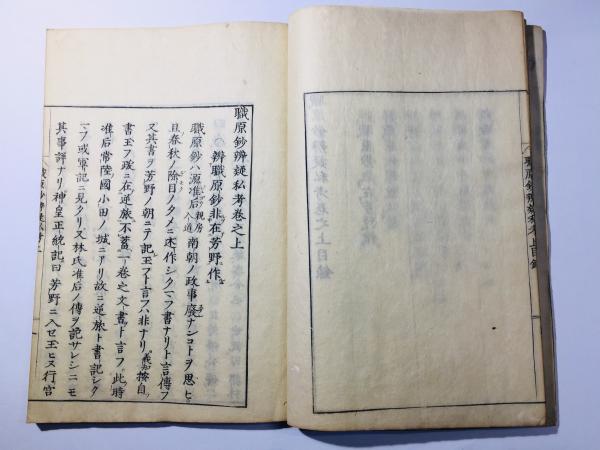 職原鈔辨疑私考卷之上
辨職原鈔非在芳野作
職原鈔ハ源准后親房入道南朝ノ政事廢ナンコトヲ思ヒ
且春秋ノ除目ノタメニ述作シタマフ書ナリト言傳フ
又其書ヲ芳野ノ朝ニテ記玉フト言フハ非ナリ按自
書玉フ跋ニ在逆旅不蓄一卷之文書ト言フ此時
准后常陸國小田ノ城ニアリ故ニ逆旅ト書記シタ
マフ或軍記ニ見タリ又林氏准后ノ傳ヲ記サレシニモ
其事詳ナリ神皇正統記曰芳野ニ入セ玉ヒヌ行宮
職原鈔辨疑私考上目錄